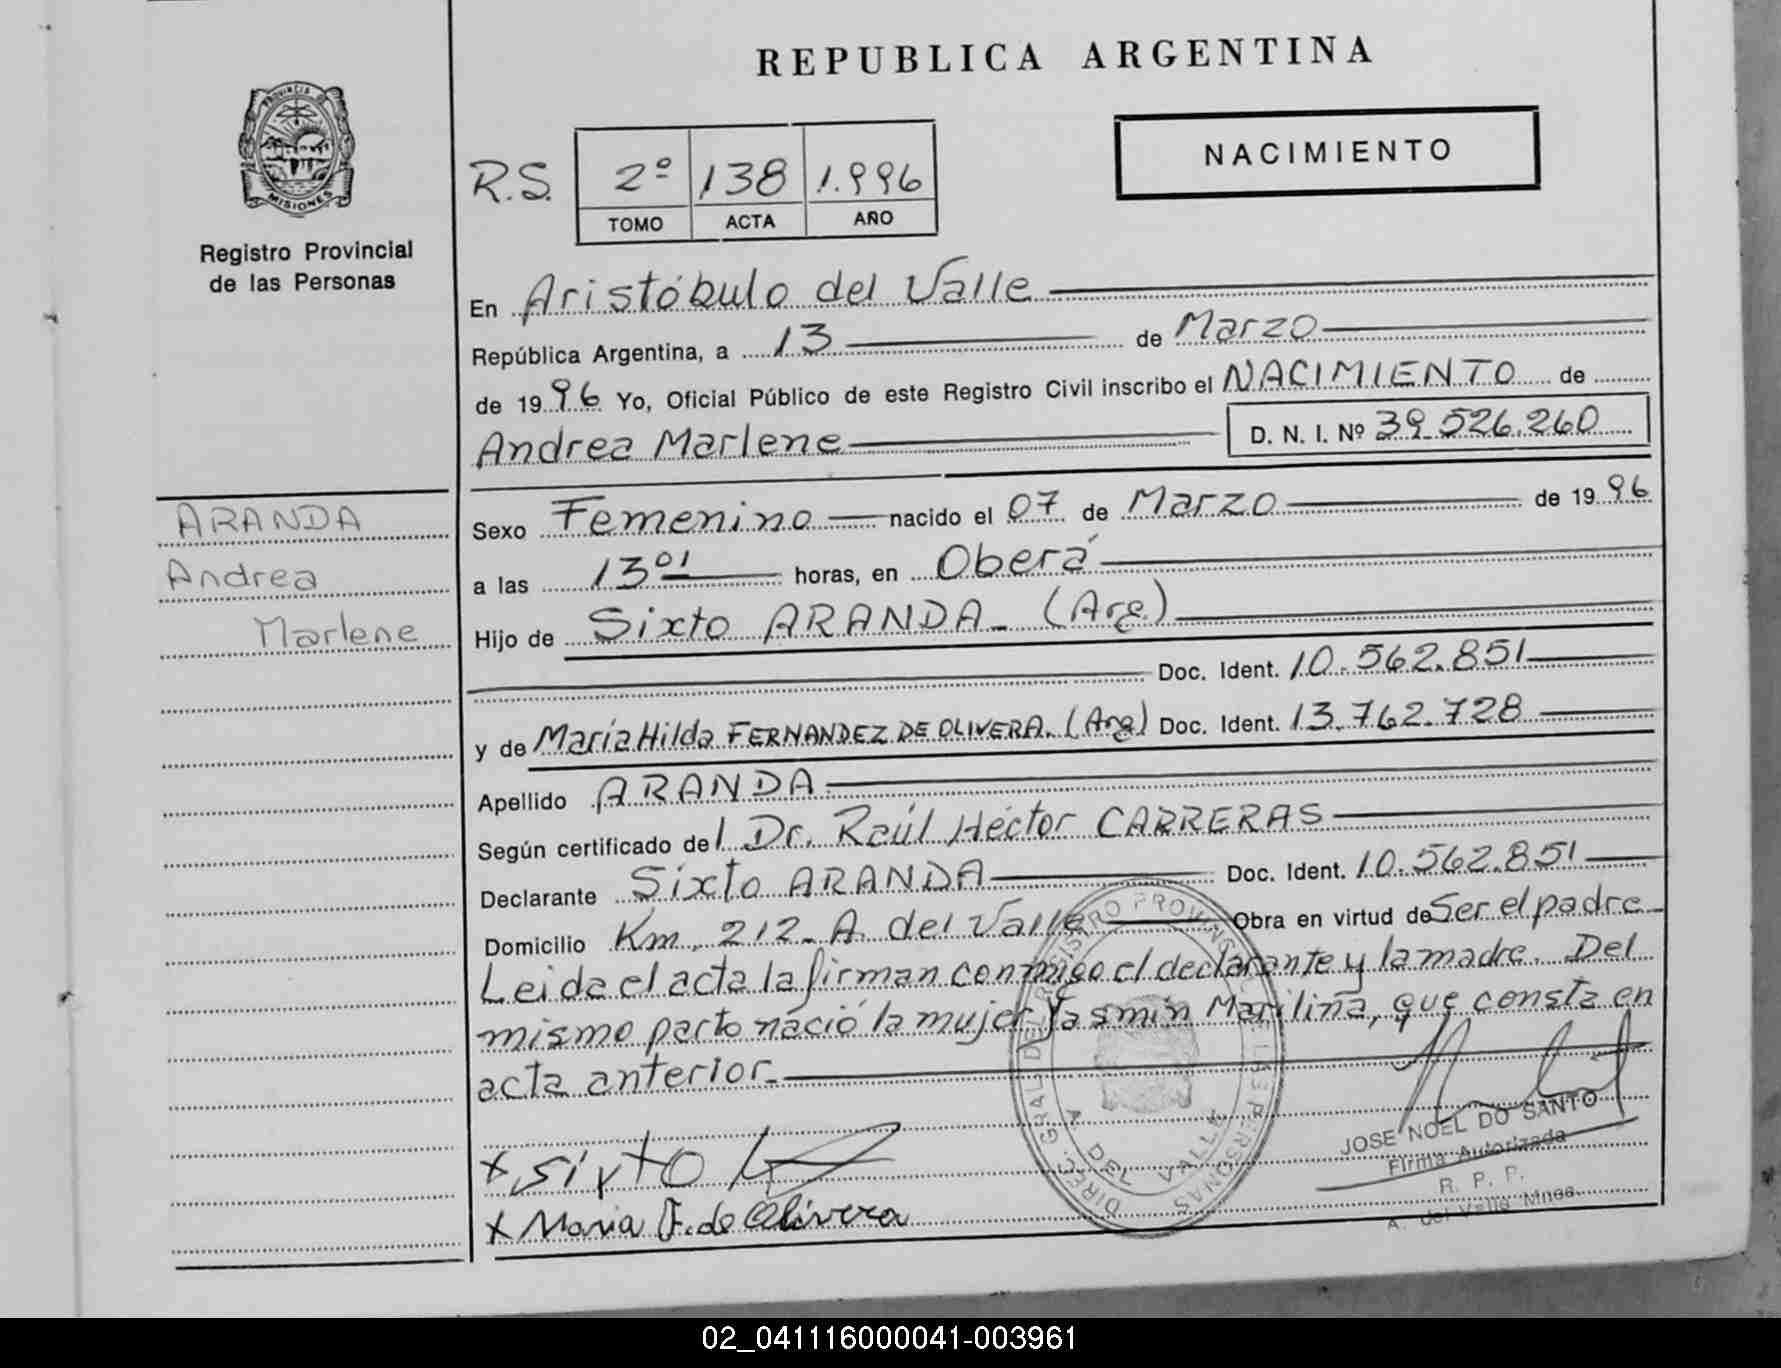 REPUBLICA ARGENTINA
PROVINCIA DE
MISIONES
Registro Provincial
de las Personas
NACIMIENTO
R.S. 2º 138 1.996
TOMO ACTA AÑO
En Aristóbulo del Valle
República Argentina, a 13 de Marzo
de 1996 Yo, Oficial Público de este Registro Civil inscribo el NACIMIENTO de
Andrea Marlene D. N. I. Nº 39.526.260
ARANDA
Andrea
Marlene
Sexo Femenino nacido el 07 de Marzo de 1996
a las 13 01 horas, en Oberá
Hijo de Sixto ARANDA (Arg.)
Doc. Ident. 10.562.851
y de María Hilda FERNANDEZ DE OLIVERA. (Arg) Doc. Ident. 13.762.728
Apellido ARANDA
Según certificado del Dr. Raúl Héctor CARRERAS
Declarante Sixto ARANDA Doc. Ident. 10.562.851
Domicilio Km. 212 - A. del Valle Obra en virtud de Ser el padre
Leida el acta la firman conmigo el declarante y la madre. Del
mismo parto nació la mujer Yasmín Mariliña, que consta en
acta anterior.
DIREC. GRAL. DEL REGISTRO PROVINCIAL PERSONAS
A DEL VALLE
JOSE NOEL DO SANTO
Firma Autorizada
R. P. P.
A. del Valle Mnes.
x sixto
x Maria F. de Olivera
02_041116000041-003961